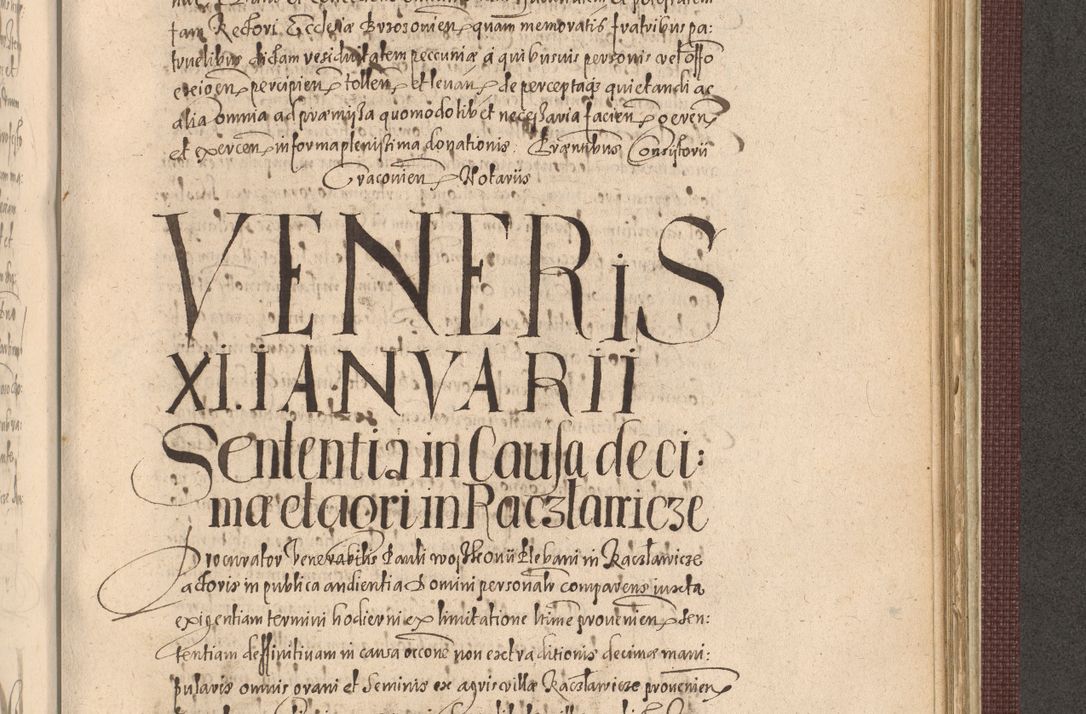 tam Rectori Ecclesiæ Brzozovien, quam memoratis fratribus pa:
truelibus dictam residuitatem peccuniæ à quibusvis personis vel offo
exigen, percipien, tollen, et levan, de perceptaq3 quietandi ac
alia omnia ad præmissa quomodolibet necessaria facien, geren,
et exercen, in forma plenissima donationis. Præntibus Consistorii
Cracovien, Notariis
VENERiS
XI. IANVARII
Sententia in Causa deci:
mæ et agri in Raczlawicze
Procurator Venerabilis Pauli Plebani in Raczlawicze
actoris in publica audientia Domini personalr comparens iuxta
exigentiam termini hodierni ex limitatione ltimé provenien, Sen:
tentiam deffinitivam in causa occone non extraditionis decimæ mani:
pularis omnis grani et Seminis ex agris villæ Raczlawicze provenien,